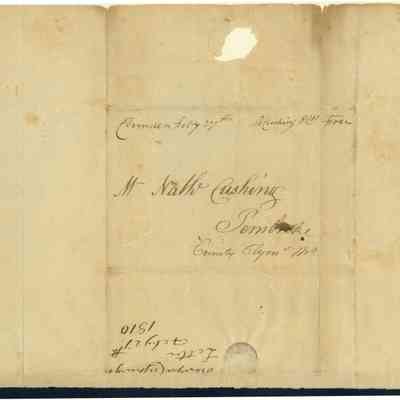 Camden Feby 27th Free
Mr Nath Cushing
Pembroke
County Plymo
Letter
Feby 27th
1810